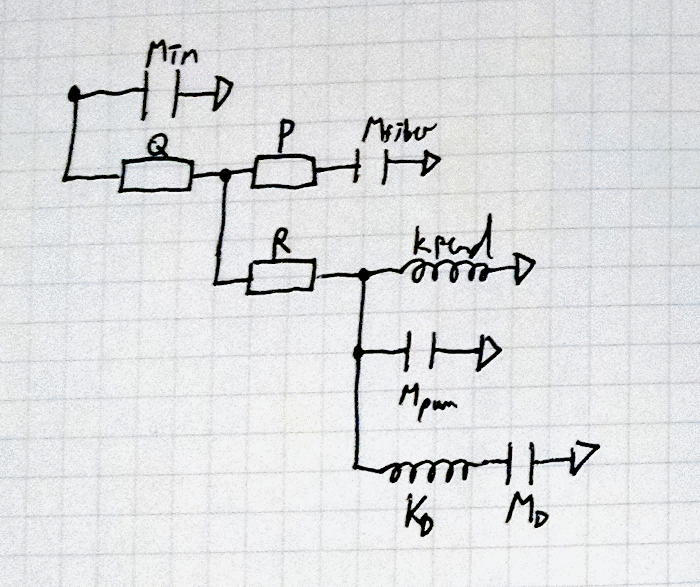 Min
Q
P
Mfiber
R
kpend
Mpum
KD
MD